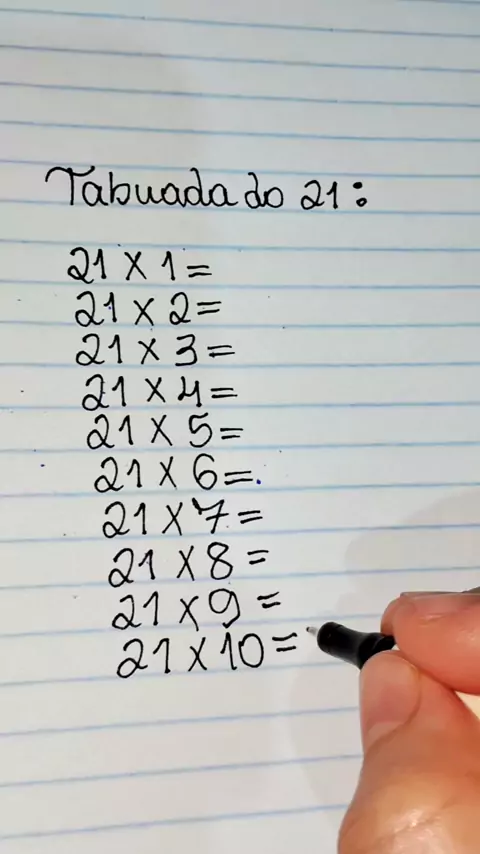 Tabuada do 21:
21 x 1 =
21 x 2 =
21 x 3 =
21 x 4 =
21 x 5 =
21 x 6 =
21 x 7 =
21 x 8 =
21 x 9 =
21 x 10 =